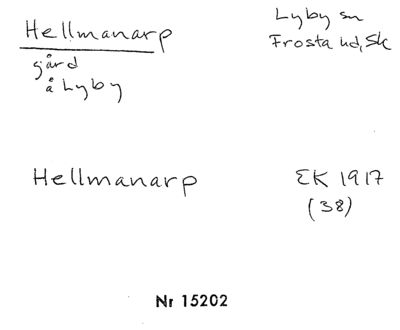 Hellmanarp
Lyby sn
Frosta hd, Sk
gård
å Lyby
Hellmanarp
EK 1917
(38)
Nr 15202